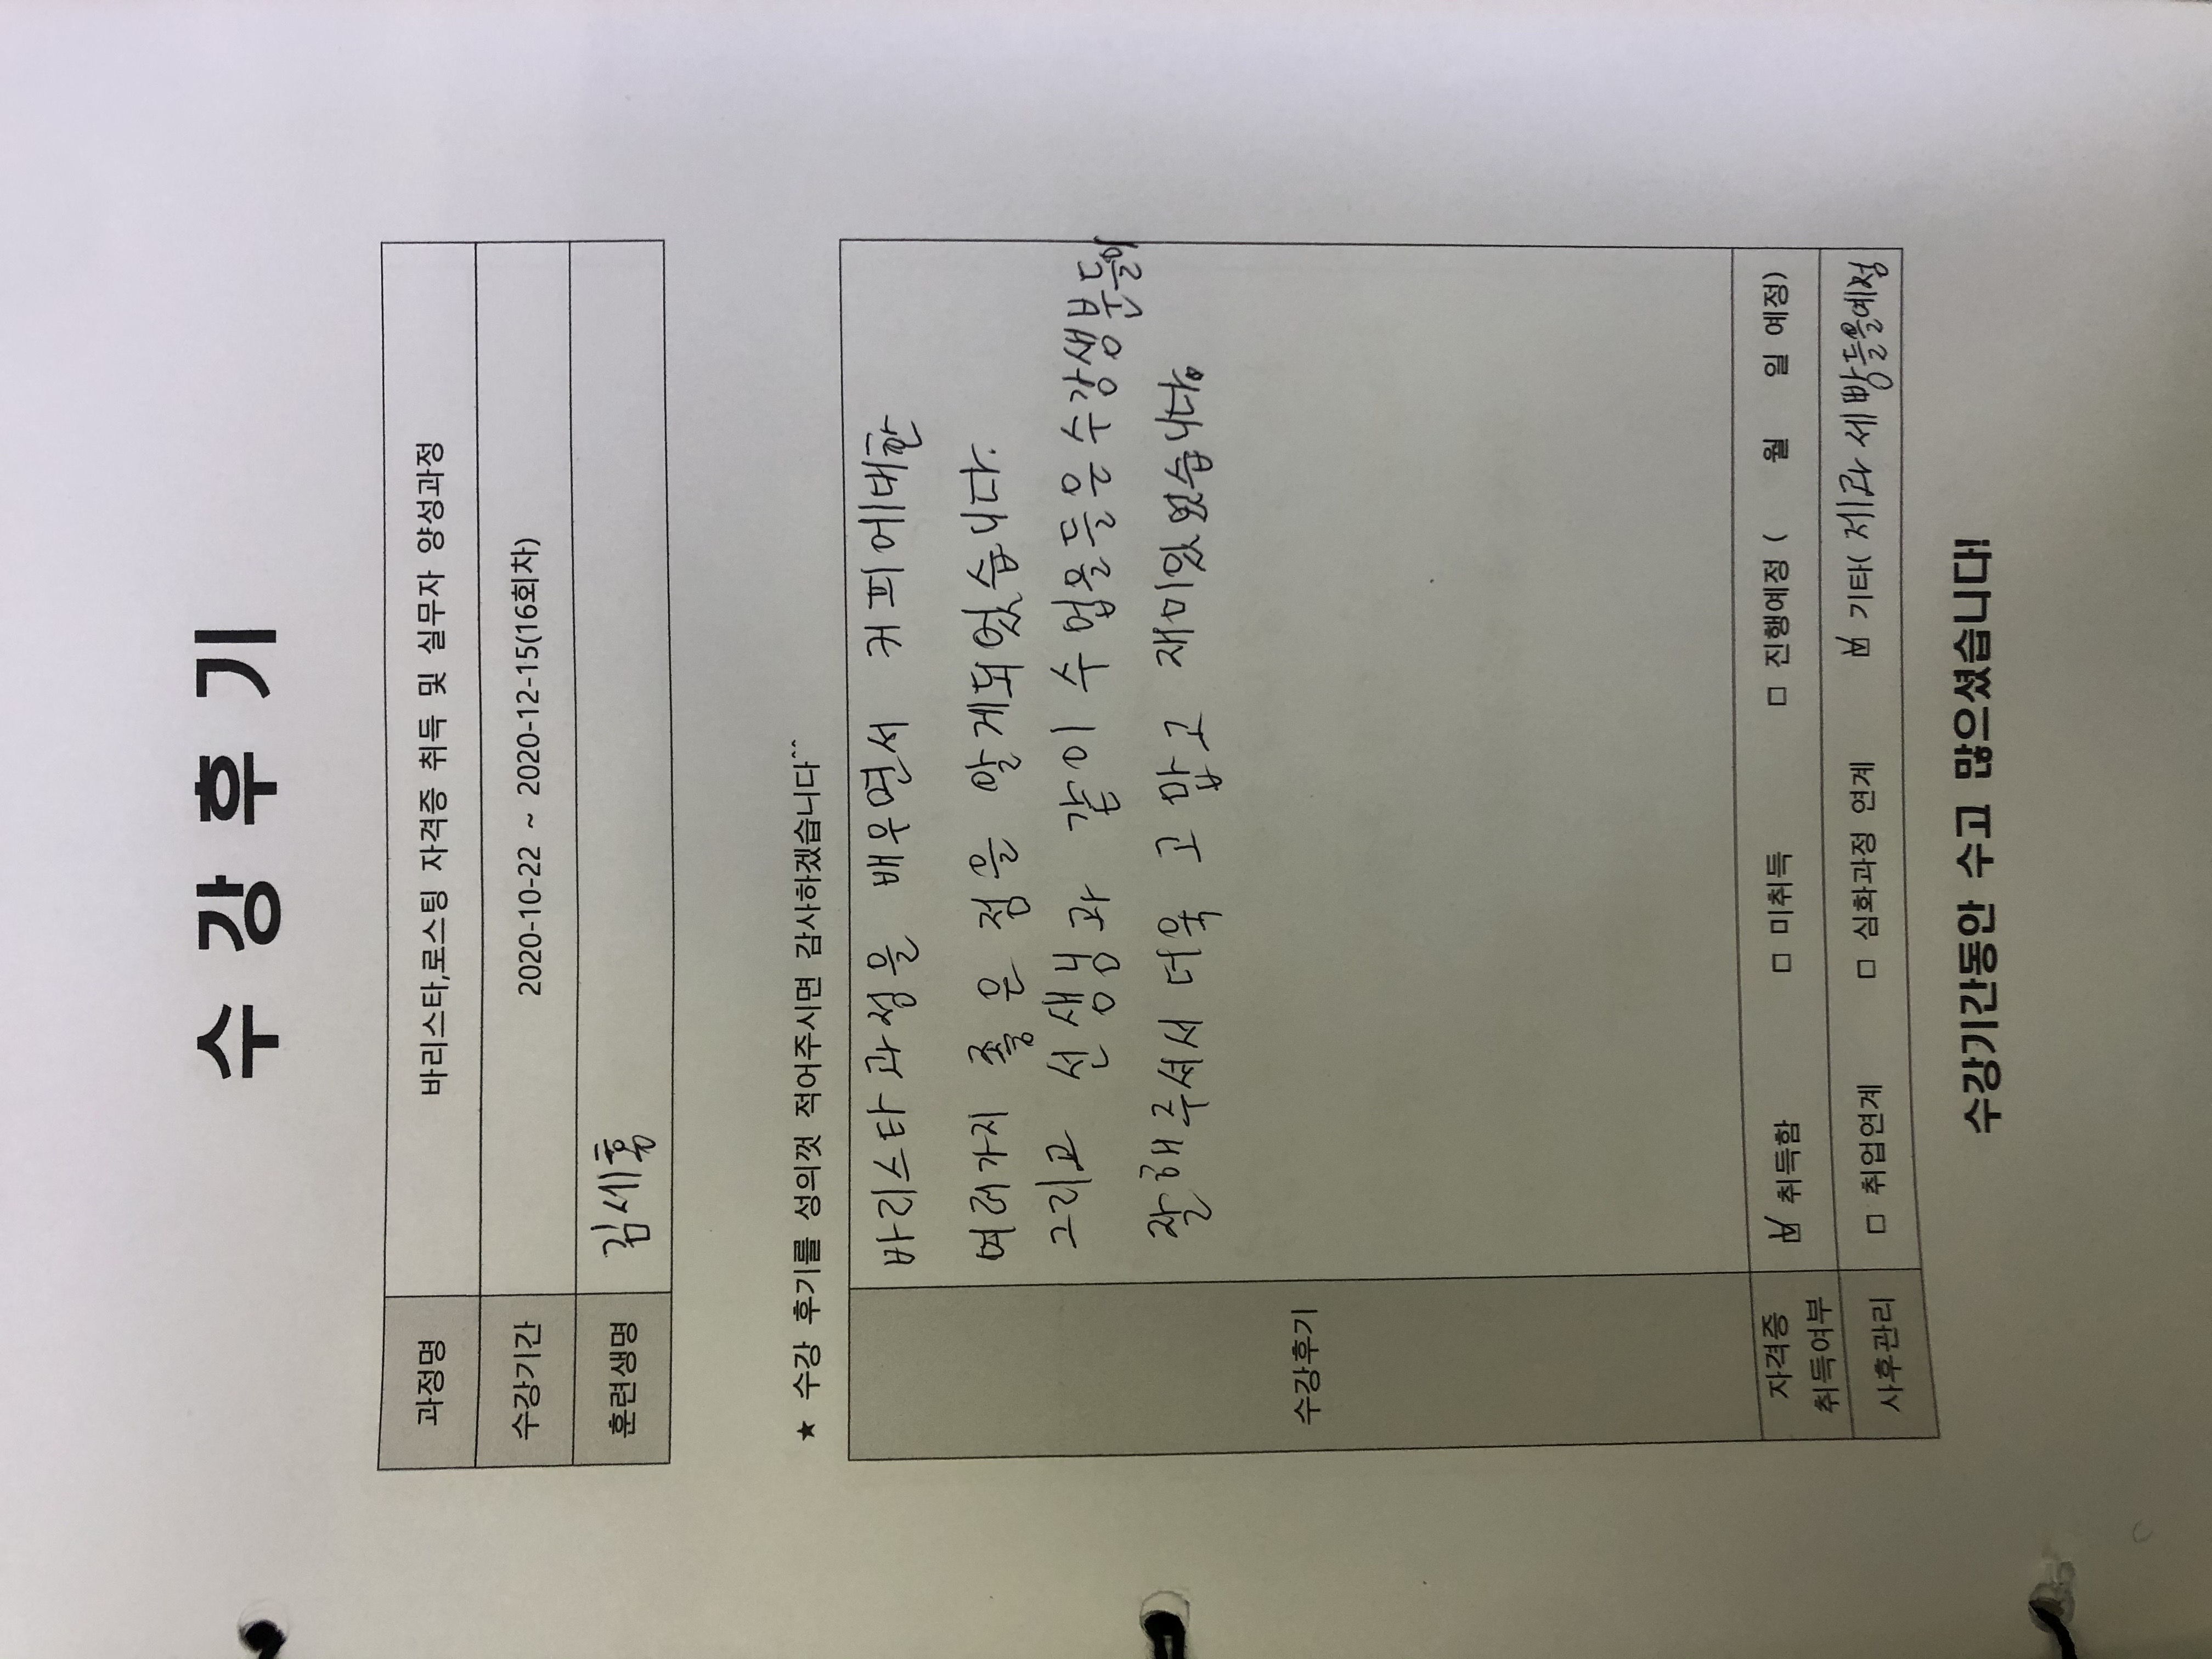 수 강 후 기
과정명 바리스타,로스팅 자격증 취득 및 실무자 양성과정
수강기간 2020-10-22 ~ 2020-12-15(16회차)
훈련생명 김세홍
★ 수강 후기를 성의껏 적어주시면 감사하겠습니다^^
바리스타과정을 배우면서 커피에대한
여러가지 좋은 점을 알게되었습니다.
그리고 선생님과 같이 수업을들은수강생분들이
수강후기
잘해주셔서 더욱 고맙고 재미있었습니다.
자격증 취득여부 ☑ 취득함 □ 미취득 □ 진행예정 ( 월 일 예정)
사후관리 □ 취업연계 □ 심화과정 연계 ☑ 기타( 제과 빵들을예정
수강기간동안 수고 많으셨습니다!